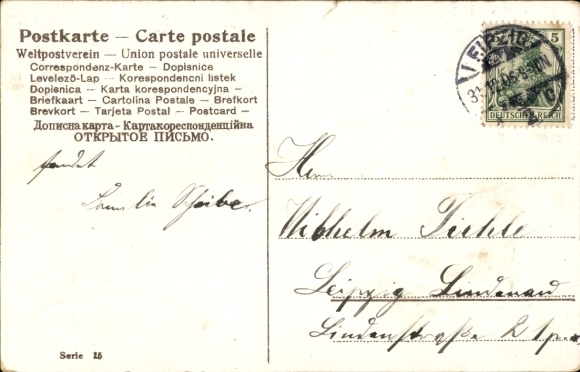 Postkarte — Carte postale
Weltpostverein — Union postale universelle
Correspondenz-Karte — Dopisnice
Levelező-Lap — Korespondencni listek
Dopisnica — Karta korespondencyjna —
Briefkaart — Cartolina Postale — Brefkort
Brevkort — Tarjeta Postal — Postcard —
Дописна карта - Картакореспонденцїйна
ОТКРЫТОЕ ПИСЬМО.
sendet
Familie Scheibe.
Serie 15
LEIPZIG
5
DEUTSCHES REICH
Herrn
Wilhelm
Leipzig Lindenau
Lindenstraße 2